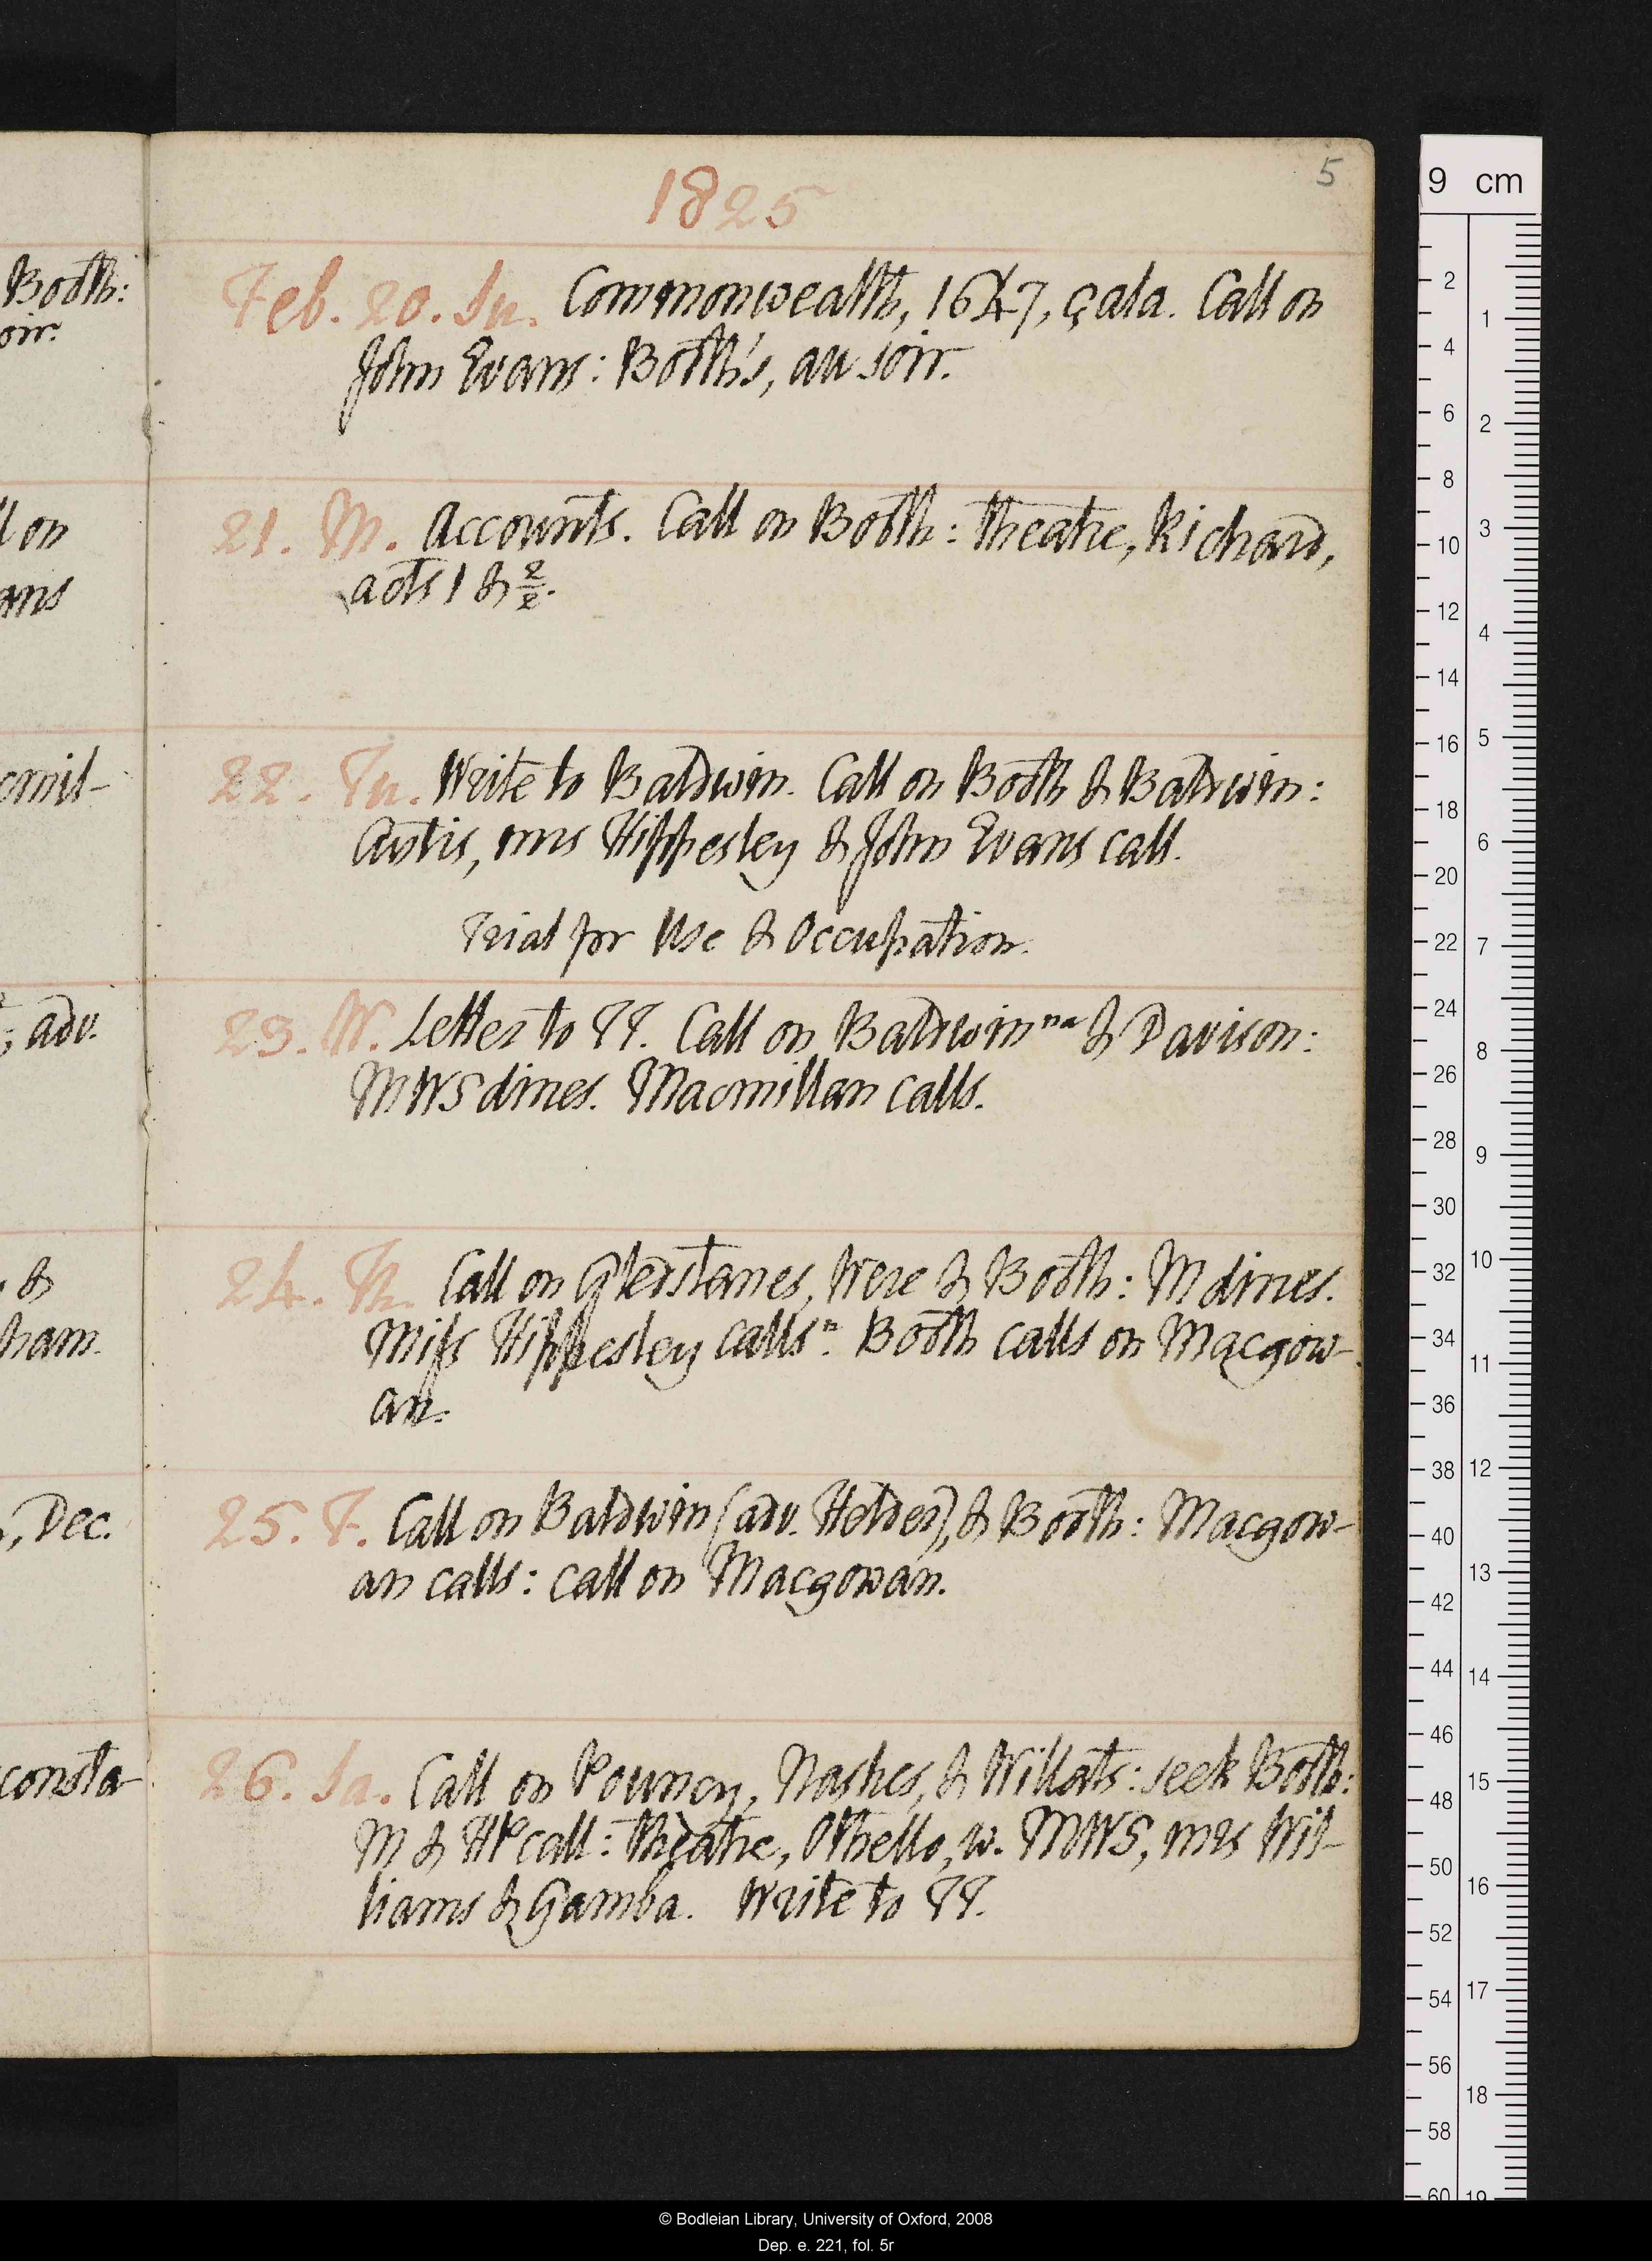 5
1825
Booth:
oir.
Feb. 20. Su. Commonwealth, 1647, çala. Call on
John Evans: Booth's, au soir.
l on
ans
21. M. Accounts. Call on Booth: theatre, Richard,
acts 1 & 2/2.
cmil-
22. Tu. Write to Baldwin. Call on Booth & Baldwin:
Curtis, mrs Hippesley & John Evans call.
Trial for Use & Occupation.
; adv.
23. W. Letter to TT. Call on Baldwin na & Davison:
MWS dines. Macmillan calls.
& 
ham.
24. Th. Call on Gledstanes, Were & Booth: M dines.
Miss Hippesley calls n. Booth calls on Macgow-
an.
, Dec.
25. F. Call on Baldwin (adv. Helder), & Booth: Macgow-
an calls: call on Macgowan.
consta-
26. Sa. Call on Pouncy, Nashes, & Willats: seek Booth:
M & HP call: theatre, Othello, w. MWS, mrs Wil-
liams & Gamba. Write to TT.
9 cm
2 4 6 8 10 12 14 16 18 20 22 24 26 28 30 32 34 36 38 40 42 44 46 48 50 52 54 56 58 60
1 2 3 4 5 6 7 8 9 10 11 12 13 14 15 16 17 18 19
© Bodleian Library, University of Oxford, 2008
Dep. e. 221, fol. 5r